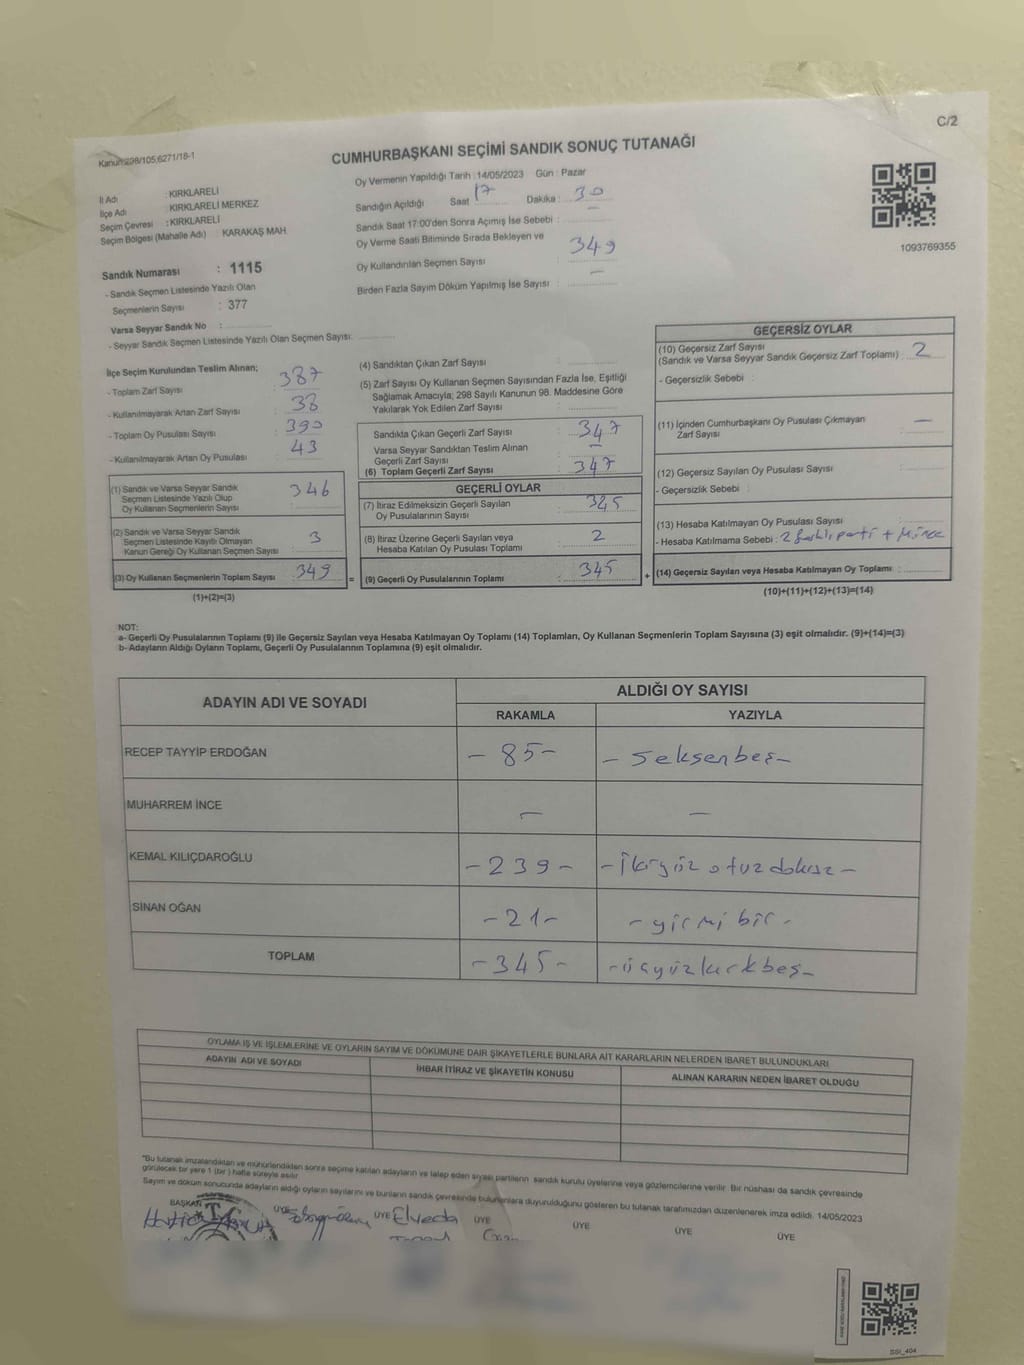 C/2
Kanun:298/105,6271/18-1
CUMHURBAŞKANI SEÇİMİ SANDIK SONUÇ TUTANAĞI
İl Adı : KIRKLARELİ
İlçe Adı : KIRKLARELİ MERKEZ
Seçim Çevresi : KIRKLARELİ
Seçim Bölgesi (Mahalle Adı) : KARAKAŞ MAH
Sandık Numarası : 1115
- Sandık Seçmen Listesinde Yazılı Olan
Seçmenlerin Sayısı : 377
Varsa Seyyar Sandık No :
- Seyyar Sandık Seçmen Listesinde Yazılı Olan Seçmen Sayısı:
Oy Vermenin Yapıldığı Tarih : 14/05/2023 Gün : Pazar
Sandığın Açıldığı Saat 17 Dakika : 30
Sandık Saat 17:00'den Sonra Açımış İse Sebebi : –
Oy Verme Saati Bitiminde Sırada Bekleyen ve
Oy Kullandırılan Seçmen Sayısı : 349
Birden Fazla Sayım Döküm Yapılmış İse Sayısı : –
1093769355
İlçe Seçim Kurulundan Teslim Alınan;
- Toplam Zarf Sayısı : 387
- Kullanılmayarak Artan Zarf Sayısı : 38
- Toplam Oy Pusulası Sayısı : 390
- Kullanılmayarak Artan Oy Pusulası : 43
(1) Sandık ve Varsa Seyyar Sandık
Seçmen Listesinde Yazılı Olup
Oy Kullanan Seçmenlerin Sayısı : 346
(2) Sandık ve Varsa Seyyar Sandık
Seçmen Listesinde Kayıtlı Olmayan
Kanun Gereği Oy Kullanan Seçmen Sayısı : 3
(3) Oy Kullanan Seçmenlerin Toplam Sayısı : 349 =
(1)+(2)=(3)
(4) Sandıktan Çıkan Zarf Sayısı :
(5) Zarf Sayısı Oy Kullanan Seçmen Sayısından Fazla İse, Eşitliği
Sağlamak Amacıyla; 298 Sayılı Kanunun 98. Maddesine Göre
Yakılarak Yok Edilen Zarf Sayısı :
Sandıkta Çıkan Geçerli Zarf Sayısı : 347
Varsay Seyyar Sandıktan Teslim Alınan
Geçerli Zarf Sayısı : –
(6) Toplam Geçerli Zarf Sayısı : 347
GEÇERLİ OYLAR
(7) İtiraz Edilmeksizin Geçerli Sayılan
Oy Pusulalarının Sayısı : 345
(8) İtiraz Üzerine Geçerli Sayılan veya
Hesaba Katılan Oy Pusulası Toplamı : 2
(9) Geçerli Oy Pusulalarının Toplamı : 345 +
GEÇERSİZ OYLAR
(10) Geçersiz Zarf Sayısı
(Sandık ve Varsa Seyyar Sandık Geçersiz Zarf Toplamı) : 2
- Geçersizlik Sebebi :
(11) İçinden Cumhurbaşkanı Oy Pusulası Çıkmayan
Zarf Sayısı : –
(12) Geçersiz Sayılan Oy Pusulası Sayısı :
- Geçersizlik Sebebi :
(13) Hesaba Katılmayan Oy Pusulası Sayısı :
- Hesaba Katılmama Sebebi : 2 farklı parti +
(14) Geçersiz Sayılan veya Hesaba Katılmayan Oy Toplamı :
(10)+(11)+(12)+(13)=(14)
NOT:
a- Geçerli Oy Pusulalarının Toplamı (9) ile Geçersiz Sayılan veya Hesaba Katılmayan Oy Toplamı (14) Toplamları, Oy Kullanan Seçmenlerin Toplam Sayısına (3) eşit olmalıdır. (9)+(14)=(3)
b- Adayların Aldığı Oyların Toplamı, Geçerli Oy Pusulalarının Toplamına (9) eşit olmalıdır.
ADAYIN ADI VE SOYADI
ALDIĞI OY SAYISI
RAKAMLA YAZIYLA
RECEP TAYYİP ERDOĞAN – 85 – – Seksenbeş –
MUHARREM İNCE – –
KEMAL KILIÇDAROĞLU – 239 – – İkiyüz otuzdokuz –
SİNAN OĞAN – 21 – – yirmi bir –
TOPLAM – 345 – – üçyüzkırkbeş –
OYLAMA İŞ VE İŞLEMLERİNE VE OYLARIN SAYIM VE DÖKÜMÜNE DAİR ŞİKAYETLERLE BUNLARA AİT KARARLARIN NELERDEN İBARET BULUNDUKLARI
ADAYIN ADI VE SOYADI İHBAR İTİRAZ VE ŞİKAYETİN KONUSU ALINAN KARARIN NEDEN İBARET OLDUĞU
"Bu tutanak imzalandıktan ve mühürlendikten sonra seçime katılan adayların ve talep eden siyasi partilerin sandık kurulu üyelerine veya gözlemcilerine verilir. Bir nüshası da sandık çevresinde
görülecek bir yere 1 (bir) hafta süreyle asılır.
Sayım ve döküm sonucunda adayların aldığı oyların sayılarını ve bunların sandık çevresinde bulunanlara duyurulduğunu gösteren bu tutanak tarafımızdan düzenlenerek imza edildi. 14/05/2023
BAŞKAN ÜYE ÜYE Elveda ÜYE ÜYE ÜYE ÜYE
SSI_404